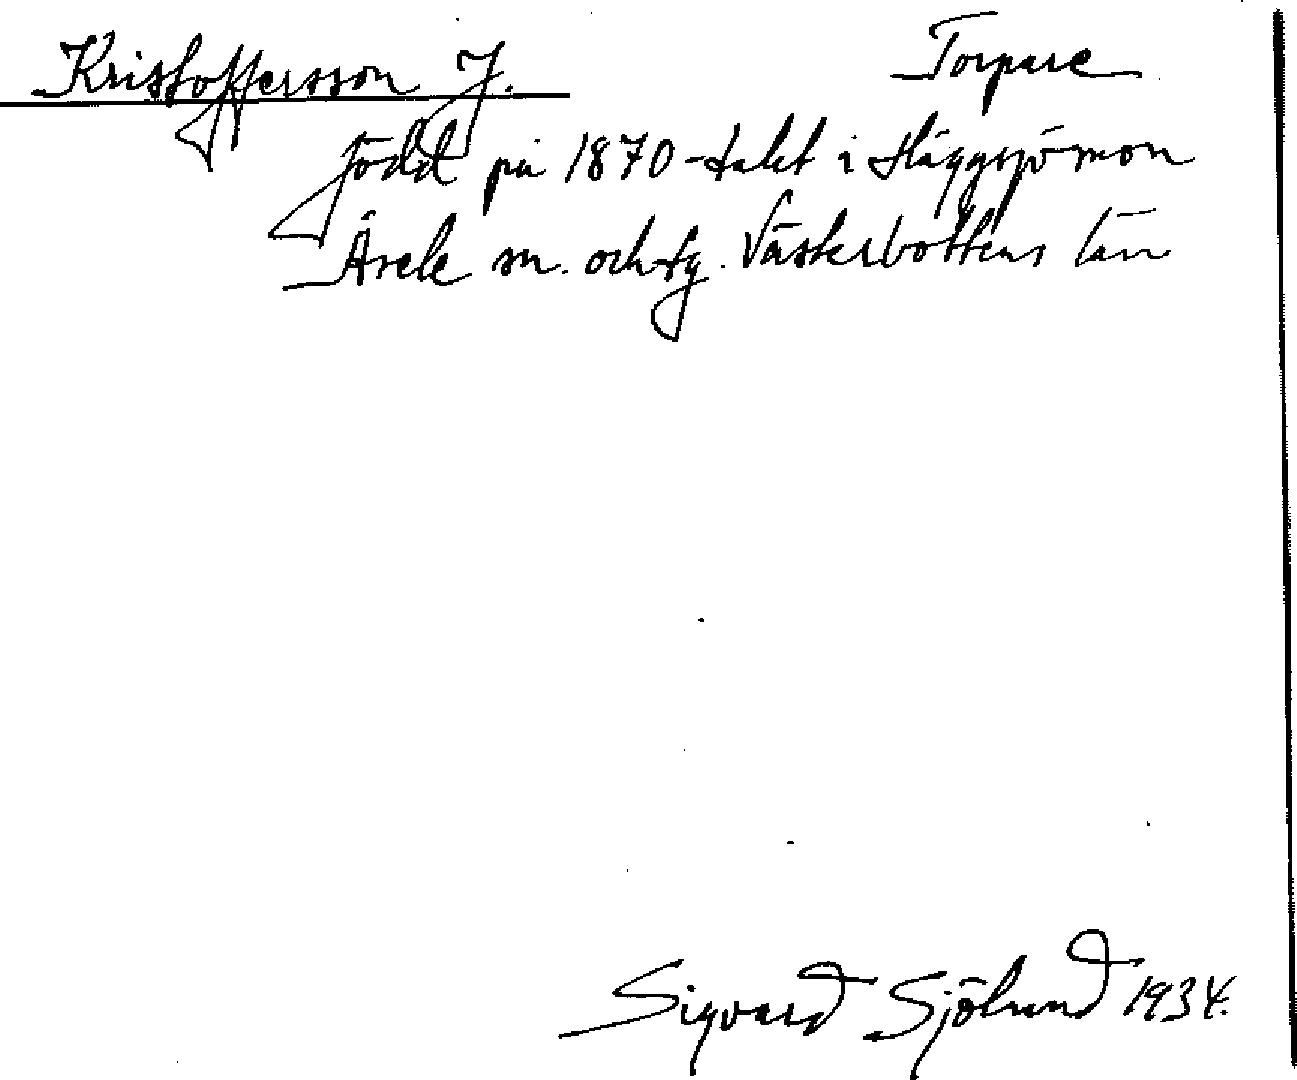 Kristoffersson J. Torpare
född på 1870-talet i Häggsjömon
Åsele sn. och tg. Västerbottens län
Sigvard Sjölund 1934.